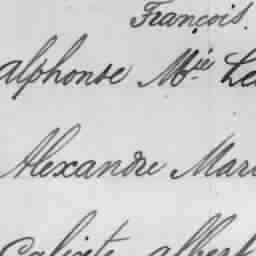 François.
alphonse Mie Le
Alexandre Mari
Calixte albert